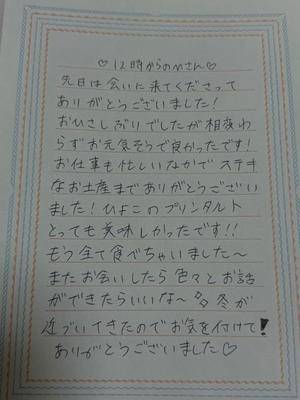 ♡12時からのMさん♡
先日は会いに来てくださって
ありがとうございました!
おひさしぶりでしたが相変わ
らずお元気そうで良かったです!
お仕事も忙しいなかでステキ
なお土産までありがとうござい
ました!ひよこのプリンタルト
とっても美味しかったです!!
もう全て食べちゃいました〜
またお会いしたら色々とお話
ができたらいいな〜 冬が
近づいてきたのでお気を付けて!
ありがとうございました♡